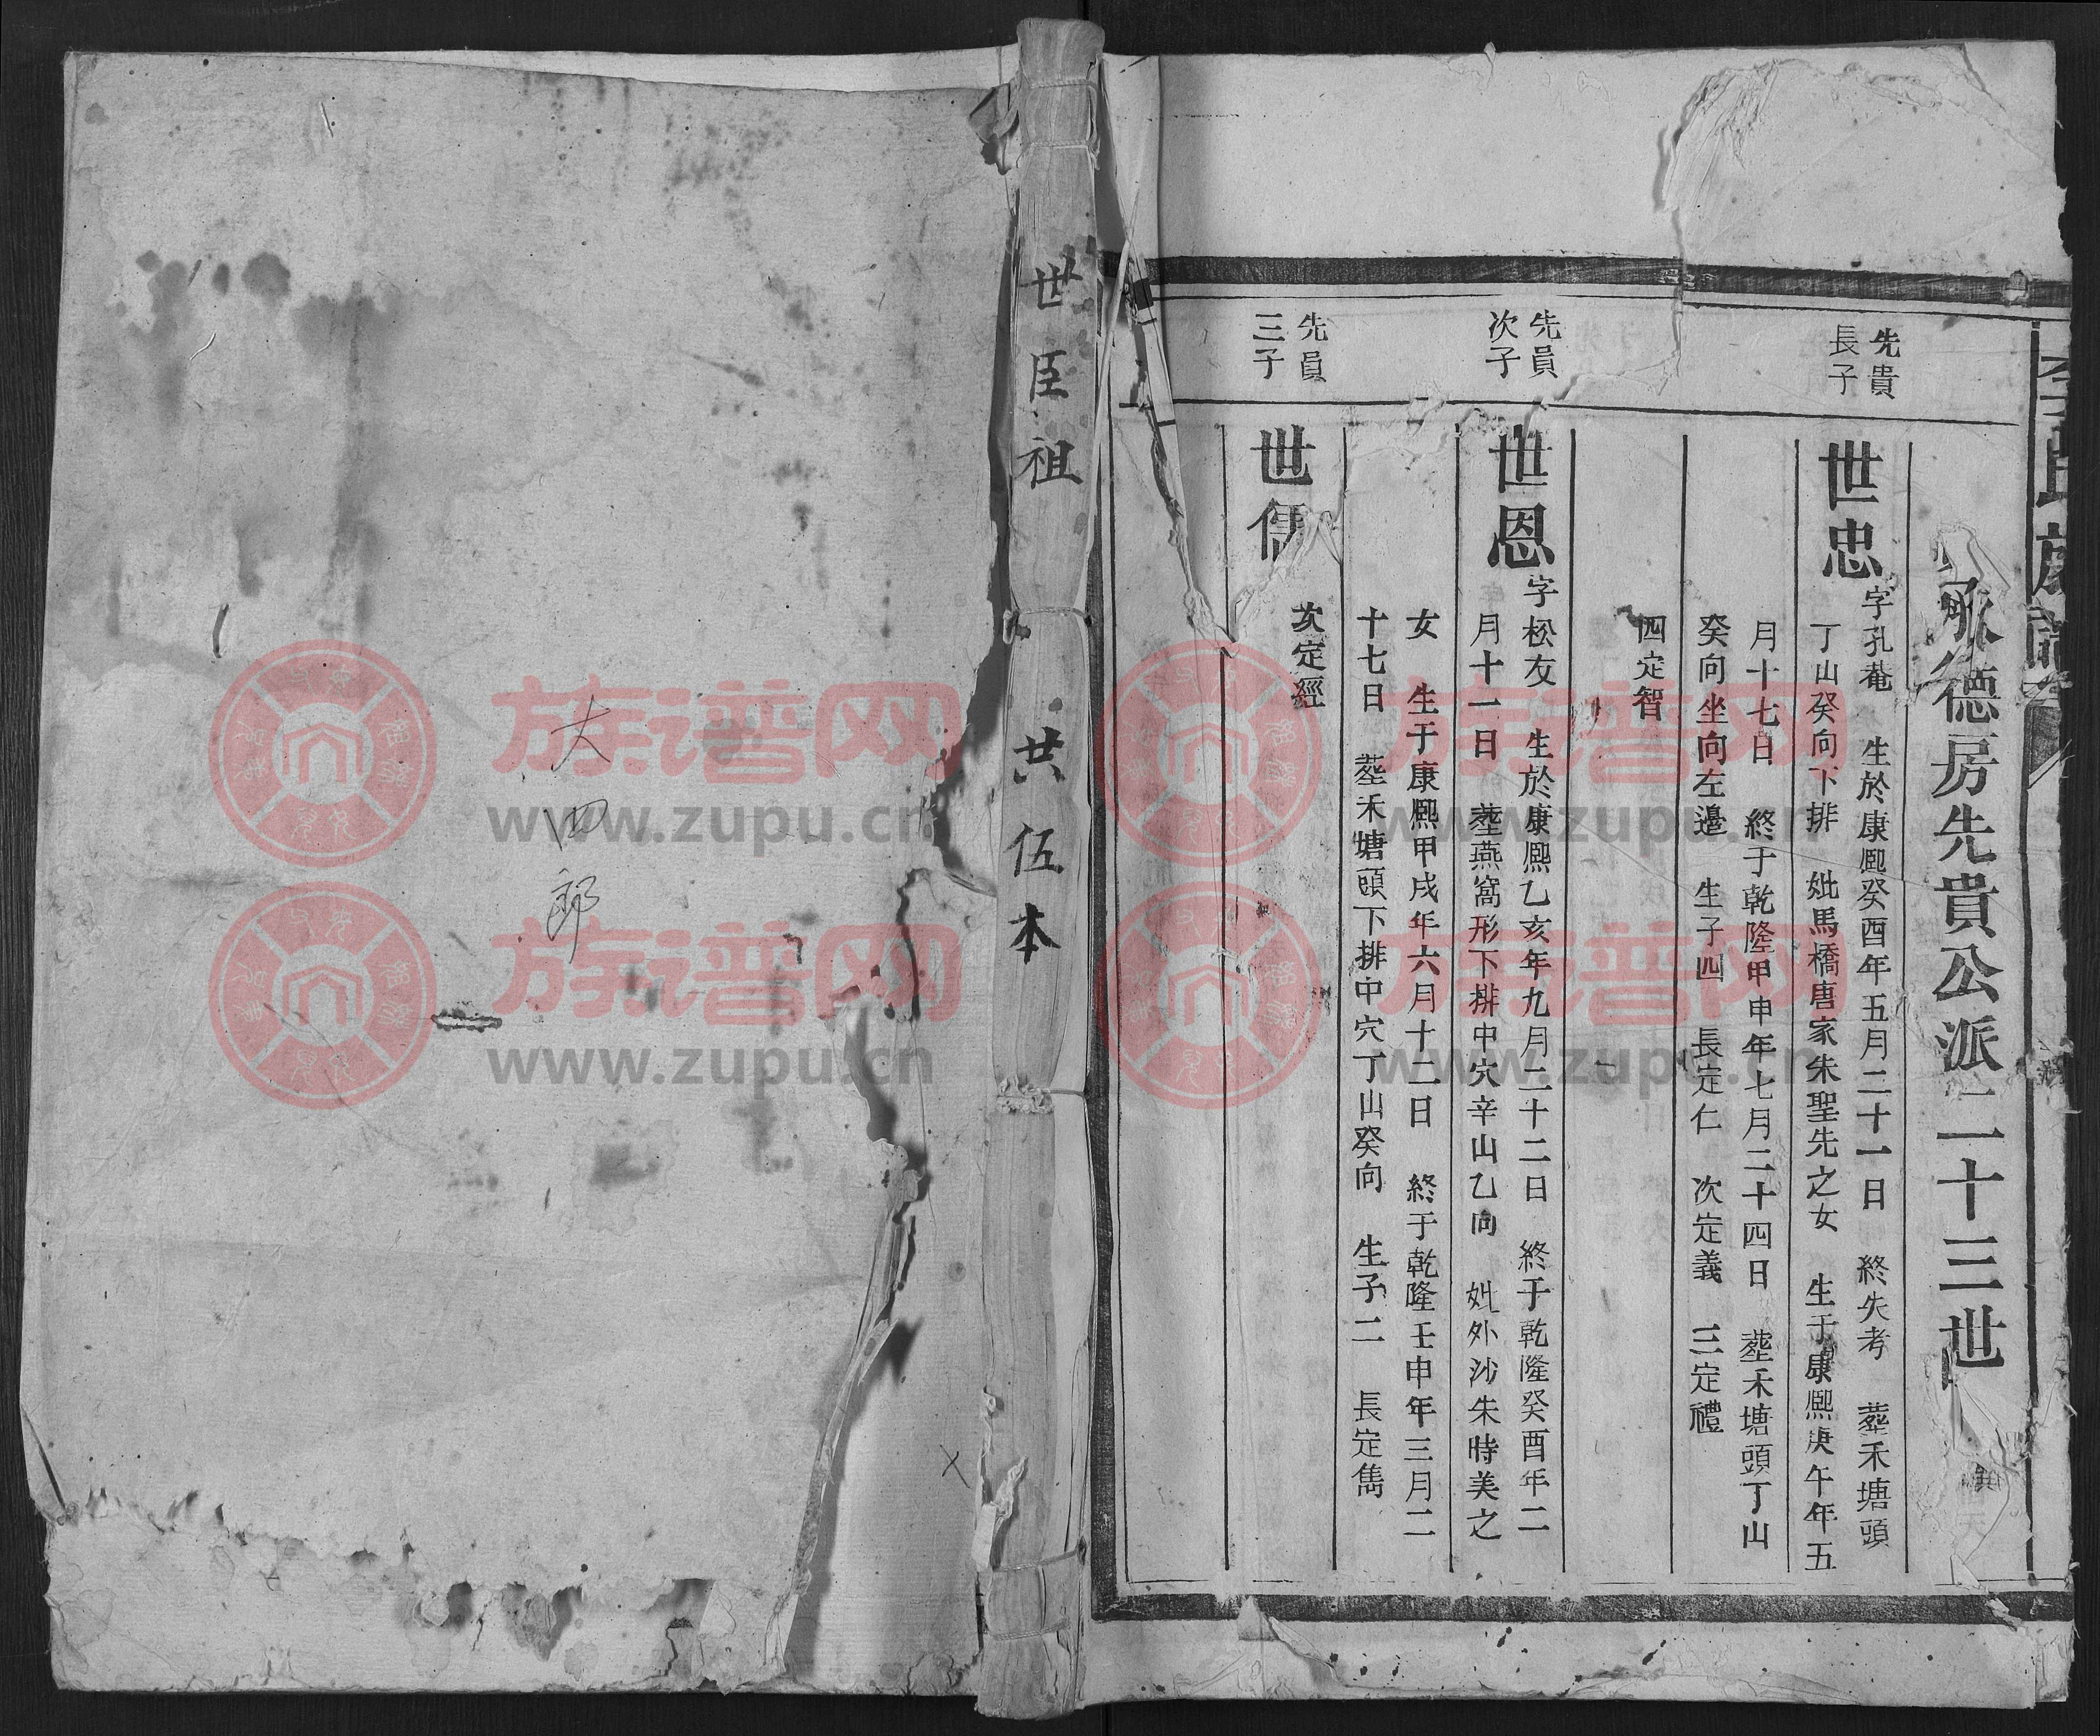 李氏族譜
承德房先貴公派二十三世
先貴
長子
世忠
字孔菴 生於康熙癸酉年五月二十一日 終失考 塟禾塘頭
丁山癸向下排 妣馬橋唐家朱聖先之女 生于康熙庚午年五
月十七日 終于乾隆甲申年七月二十四日 塟禾塘頭丁山
癸向坐向左邊 生子四 長定仁 次定義 三定禮
四定智
先員
次子
世恩
字松友 生於康熙乙亥年九月二十二日 終于乾隆癸酉年二
月十一日 塟燕窩形下排中穴辛山乙向 妣外沙朱時美之
女 生于康熙甲戌年六月十二日 終于乾隆壬申年三月二
十七日 塟禾塘頭下排中穴丁山癸向 生子二 長定雋
次定經
先員
三子
世儁
世臣祖 共伍本
大四郎
族谱网
www.zupu.cn
族谱网
www.zupu.cn
族谱网
www.zupu.cn
族谱网
www.zupu.cn